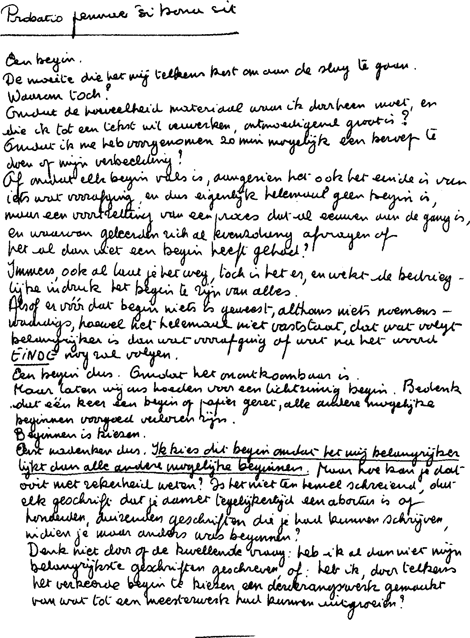 Probatio pennae si bona sit
Een begin.
De moeite die het mij telkens kost om aan de slag te gaan.
Waarom toch?
Omdat de hoeveelheid materiaal waar ik doorheen moet, en
die ik tot een tekst wil verwerken, ontmoedigend groot is?
Omdat ik me heb voorgenomen zo min mogelijk een beroep te
doen op mijn verbeelding?
Of omdat elk begin vals is, aangezien het ook het einde is van
iets wat voorafging, en dus eigenlijk helemaal geen begin is,
maar een voortzetting van een proces dat al eeuwen aan de gang is,
en waarvan geleerden zich al evenzolang afvragen of
het al dan niet een begin heeft gehad?
Immers, ook al laat je het weg, toch is het er, en wekt de bedrieg-
lijke indruk het begin te zijn van alles.
Alsof er vóór dat begin niets is geweest, althans niets noemens-
waardigs, hoewel het helemaal niet vaststaat, dat wat volgt
belangrijker is dan wat voorafging of wat na het woord
EINDE nog zal volgen.
Een begin dus. Omdat het onontkoombaar is.
Maar laten wij ons hoeden voor een lichtzinnig begin. Bedenk
dat één keer een begin op papier gezet, alle andere mogelijke
beginnen voorgoed verloren zijn.
Beginnen is kiezen.
Eerst nadenken dus. Ik kies dit begin omdat het mij belangrijker
lijkt dan alle andere mogelijke beginnen. Maar hoe kan je dat
ooit met zekerheid weten? Is het niet ten hemel schreiend, dat
elk geschrift dat je aanvat tegelijkertijd een abortus is of
honderden, duizenden geschriften die je had kunnen schrijven,
indien je maar anders was begonnen?
Denk niet door op de kwellende vraag: heb ik al dan niet mijn
belangrijkste geschriften geschreven of: heb ik, door telkens
het verkeerde begin te kiezen een derderangswerk gemaakt
van wat tot een meesterwerk had kunnen uitgroeien?